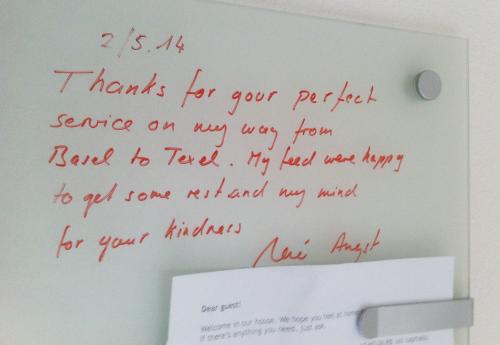 2/5.14
Thanks for your perfect
service on my way from
Basel to Texel. My feed were happy
to get some rest and my mind
for your kindness
René Angst
Dear guest!
Welcome in our house. We hope you feel at home
if there's anything you need, just ask.